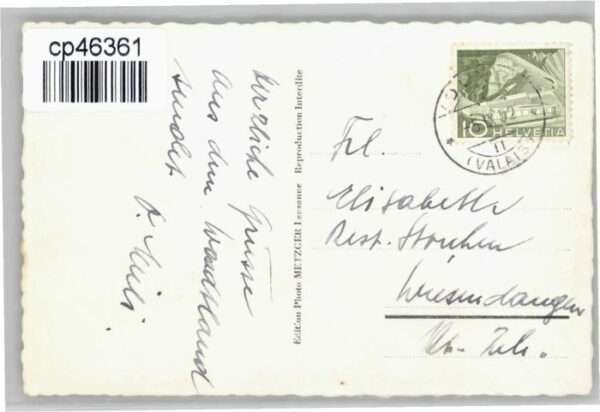 cp46361
Herzliche Grüsse
aus dem Waadtland
sendet
Edition Photo METZGER Lausanne Reproduction Interdite
10 HELVETIA
(VALAIS)
Frl.
Elisabetha
Rest. Storchen
Wiesendangen
Kt. Zch.